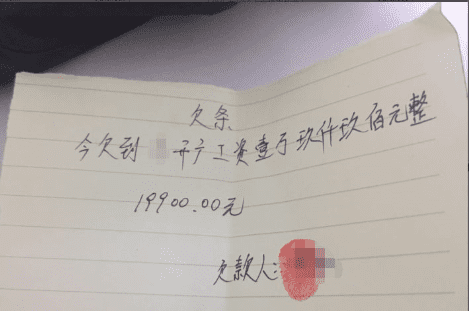 欠条
今欠到 工资壹万玖仟玖佰元整
19900.00元
欠款人: